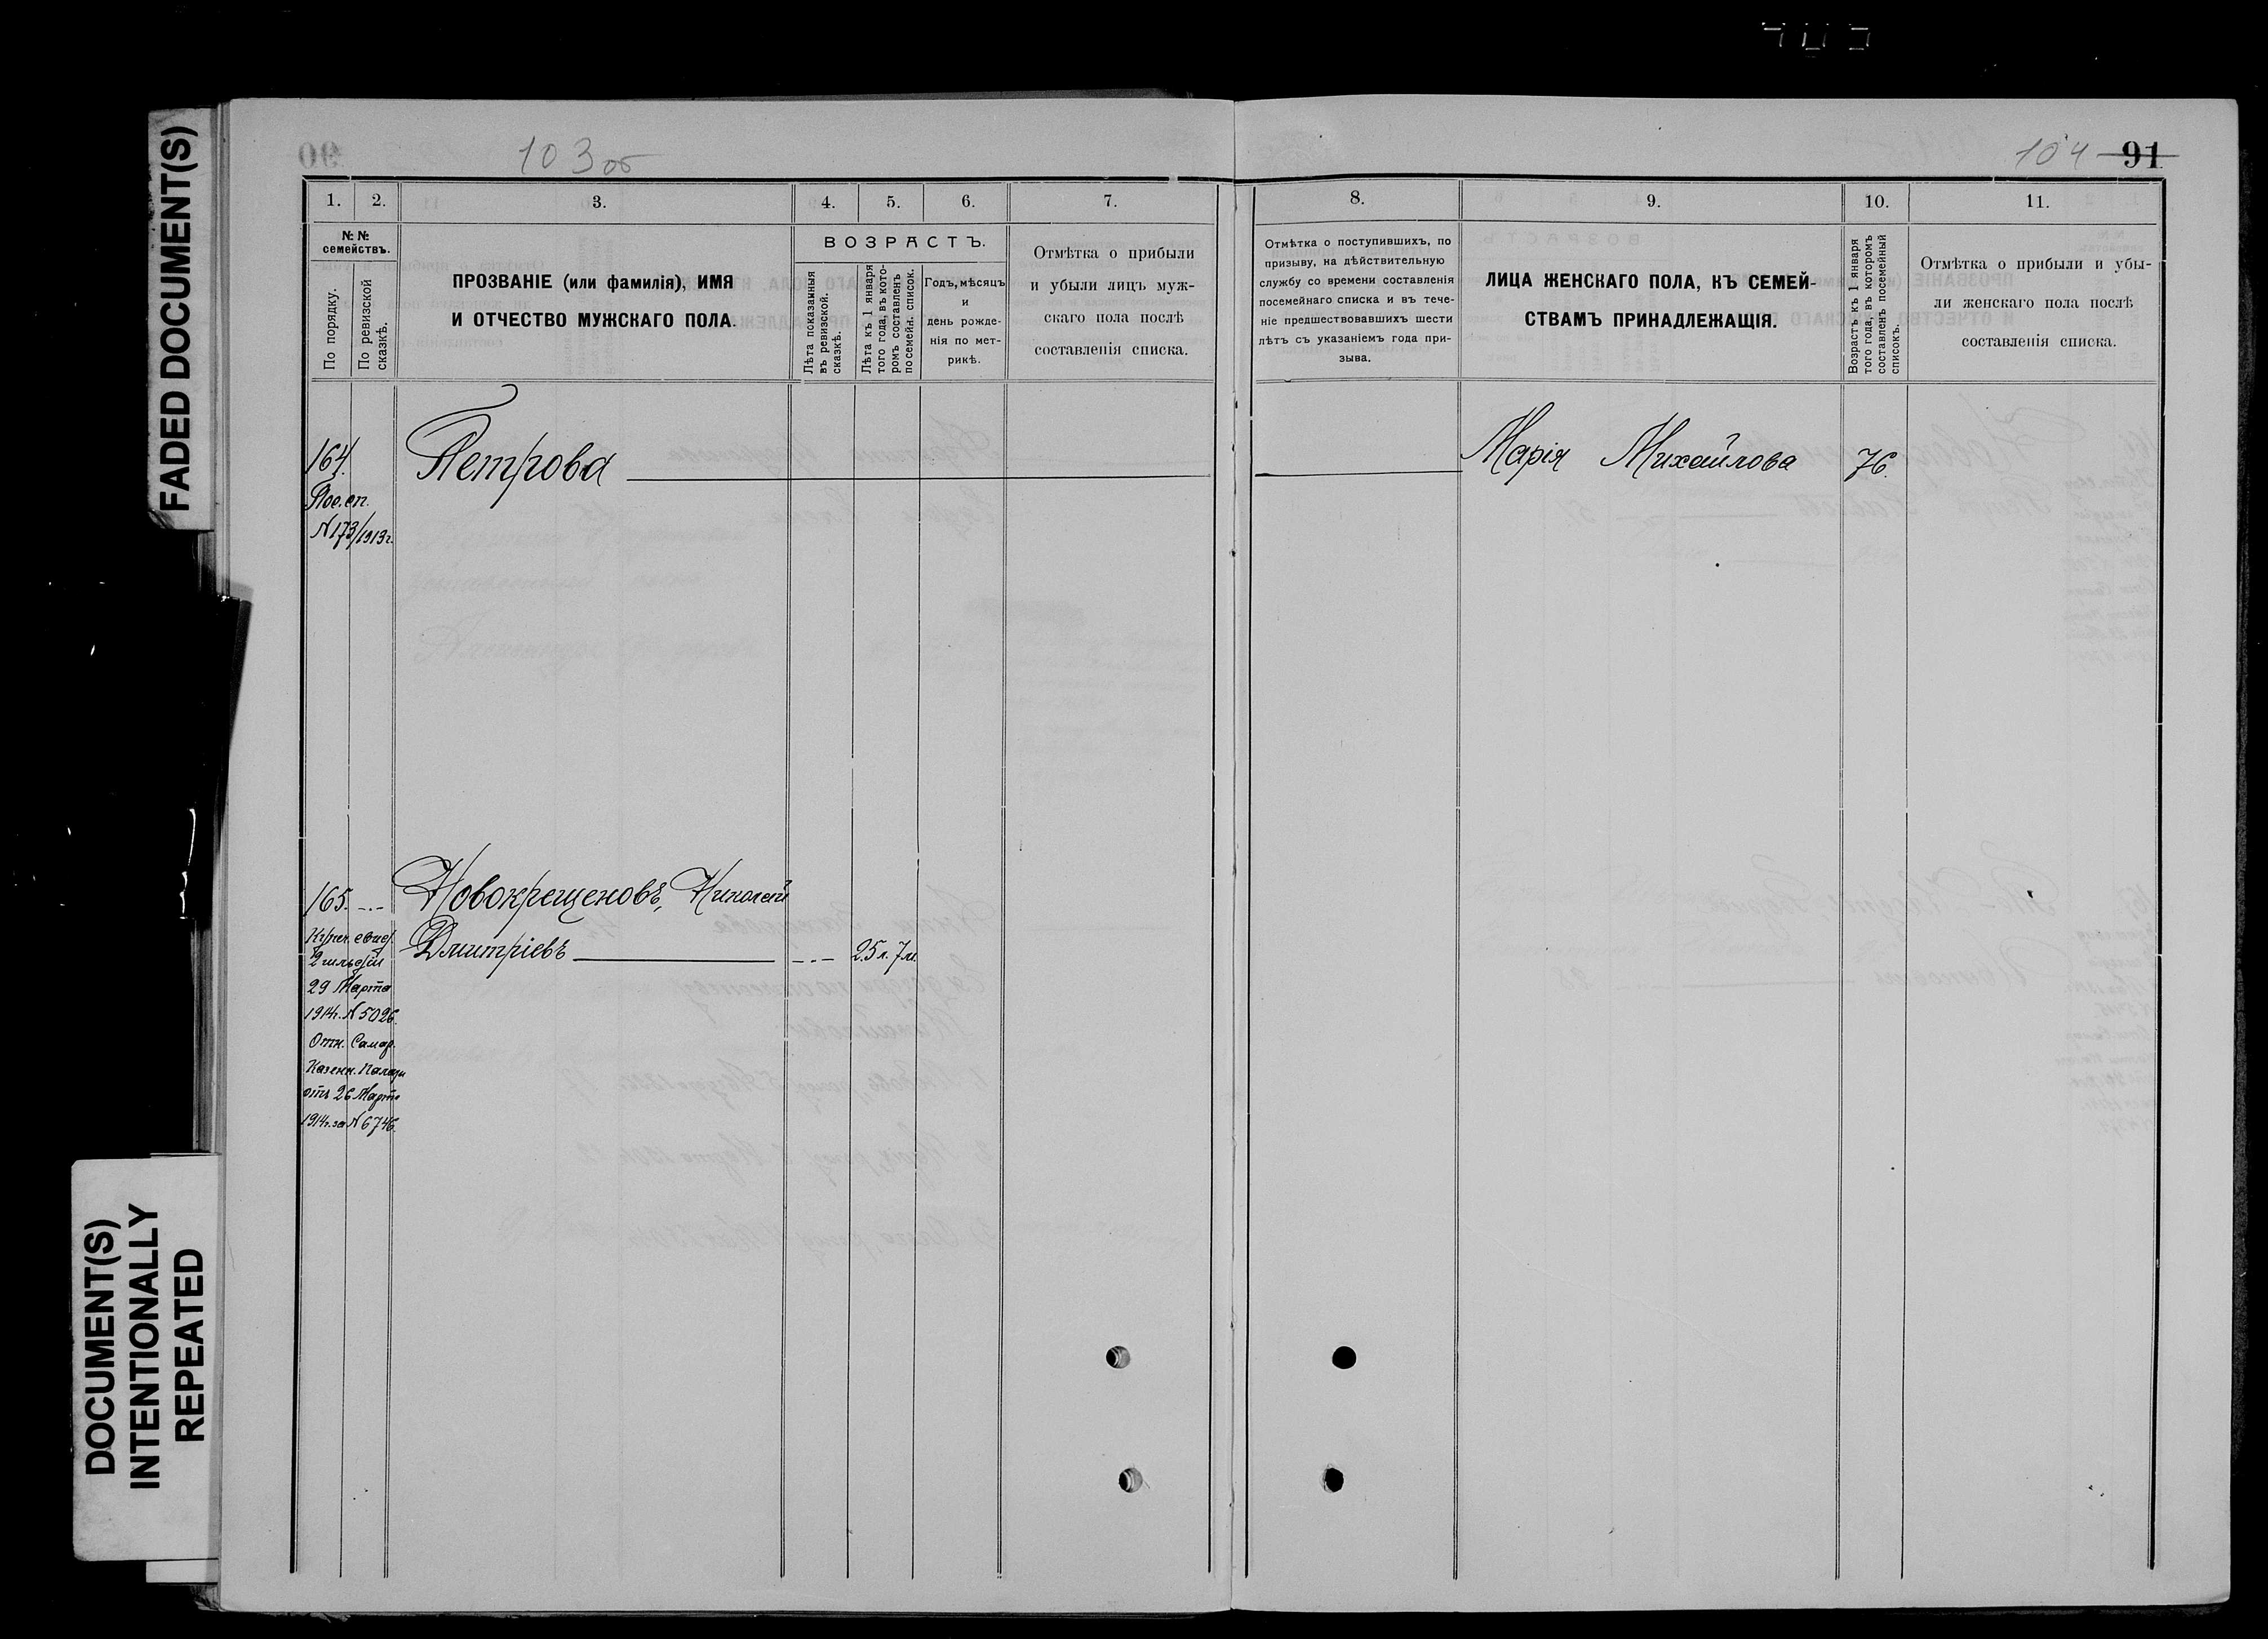 FADED DOCUMENT(S)
DOCUMENT(S)
INTENTIONALLY
REPEATED
103 об
104 91
1. 2. 3. 4. 5. 6. 7.
№№
семействъ.
По порядку.
По ревизской
сказкѣ.
ПРОЗВАНІЕ (или фамилія), ИМЯ
И ОТЧЕСТВО МУЖСКАГО ПОЛА.
ВОЗРАСТЪ.
Лѣта показанныя
въ ревизской.
сказкѣ.
Лѣта къ 1 января
того года, въ кото-
ромъ составленъ
посемейн. списокъ.
Годъ, мѣсяцъ
и
день рожде-
нія по мет-
рикѣ.
Отмѣтка о прибыли
и убыли лицъ муж-
скаго пола послѣ
составленія списка.
164.
Пос. сп.
N 173/1913 г.
Петрова
165. -.-
Купеч. свид.
2 гильдіи
29 Марта
1914 г. N 5026.
Отн. Самар.
Казенн. Палаты
отъ 26 Марта
1914 г. за N 6746.
Новокрещеновъ, Николай
Дмитріевъ -.- 25 л. 7 м.
8. 9. 10. 11.
Отмѣтка о поступившихъ, по
призыву, на дѣйствительную
службу со времени составленія
посемейнаго списка и въ тече-
ніе предшествовавшихъ шести
лѣтъ съ указаніемъ года при-
зыва.
ЛИЦА ЖЕНСКАГО ПОЛА, КЪ СЕМЕЙ-
СТВАМЪ ПРИНАДЛЕЖАЩІЯ.
Возрастъ къ 1 января
того года, въ которомъ
составленъ посемейный
списокъ.
Отмѣтка о прибыли и убы-
ли женскаго пола послѣ
составленія списка.
Марія Михайлова 76